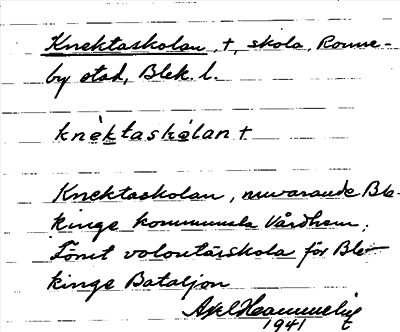 Knektaskolan, †, skola, Ronne-
by stad, Blek. l.
knèktaskólan †
Knektaskolan, nuvarande Ble-
kinge kommunala Vårdhem.
Förut volontärskola för Ble-
kinge Bataljon
Axel
1941